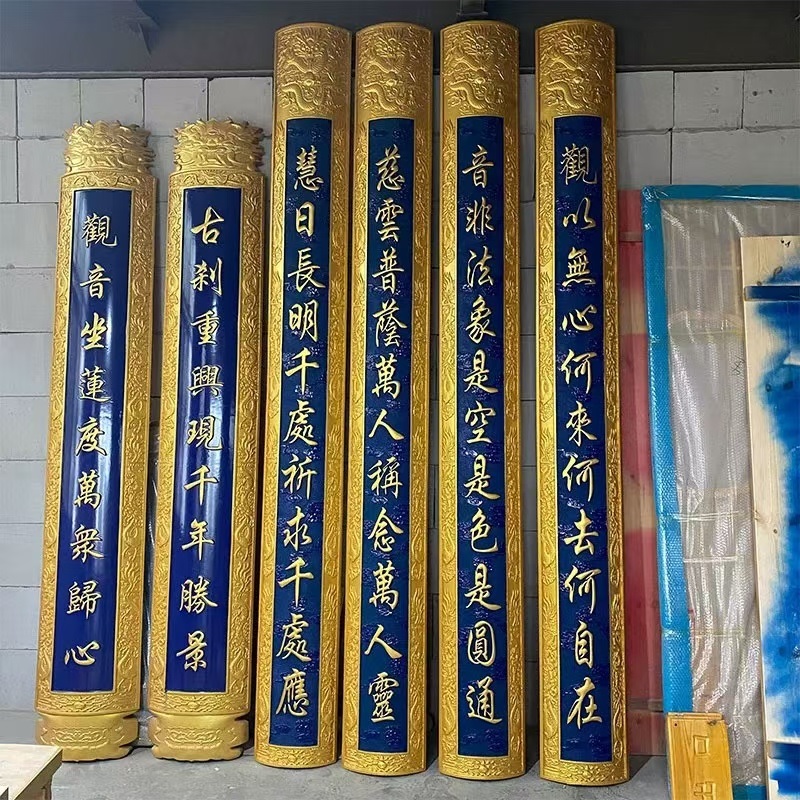 觀以無心何來何去何自在
音非法象是空是色是圓通
慈雲普蔭萬人稱念萬人靈
慧日長明千處祈求千處應
古刹重興現千年勝景
觀音坐蓮度萬衆歸心